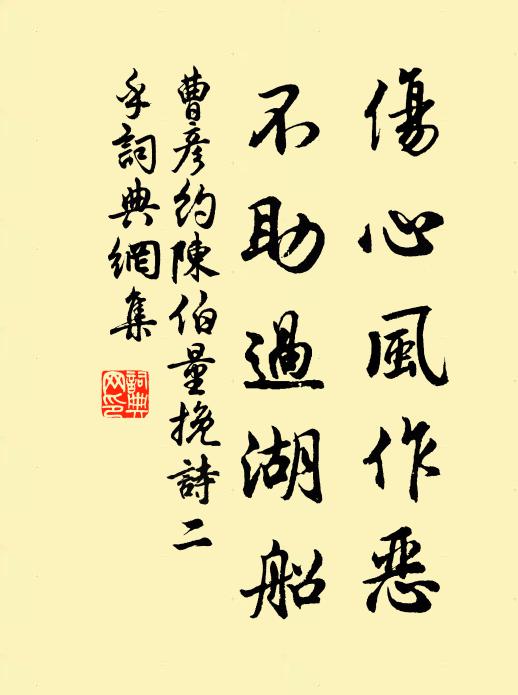 傷心風作惡
不助過湖船
曹彦約陳伯量挽詩二
手詞典網集
詞典
网印